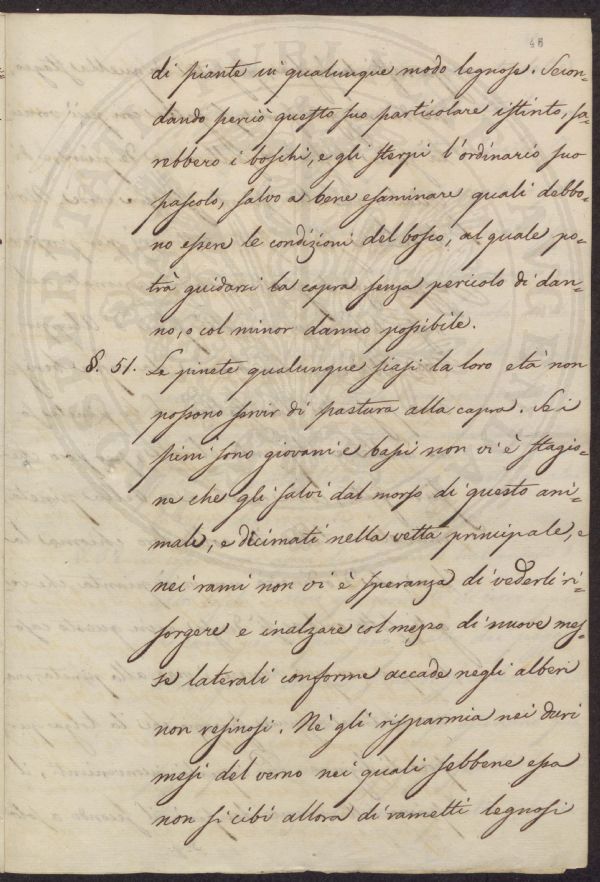 48
di piante in qualunque modo legnose. Secon-
dando perciò questo suo particolare istinto, sa-
rebbero i boschi, e gli sterpi l'ordinario suo
pascolo, salvo a bene esaminare quali debbo-
no essere le condizioni del bosco, al quale po-
trà guidarsi la capra senza pericolo di dan-
no, o col minor danno possibile.
§. 51. Le pinete qualunque siasi la loro età non
possono servir di pastura alla capra. Se i
pini sono giovani e bassi non vi è stagio-
ne che gli salvi dal morso di questo ani-
male, e decimati nella vetta principale, e
nei rami non vi è speranza di vederli ri-
sorgere e inalzare col mezzo di nuove mes-
se laterali conforme accade negli alberi
non resinosi. Nè gli risparmia nei duri
mesi del verno nei quali sebbene essa
non si cibi allora di rametti legnosi